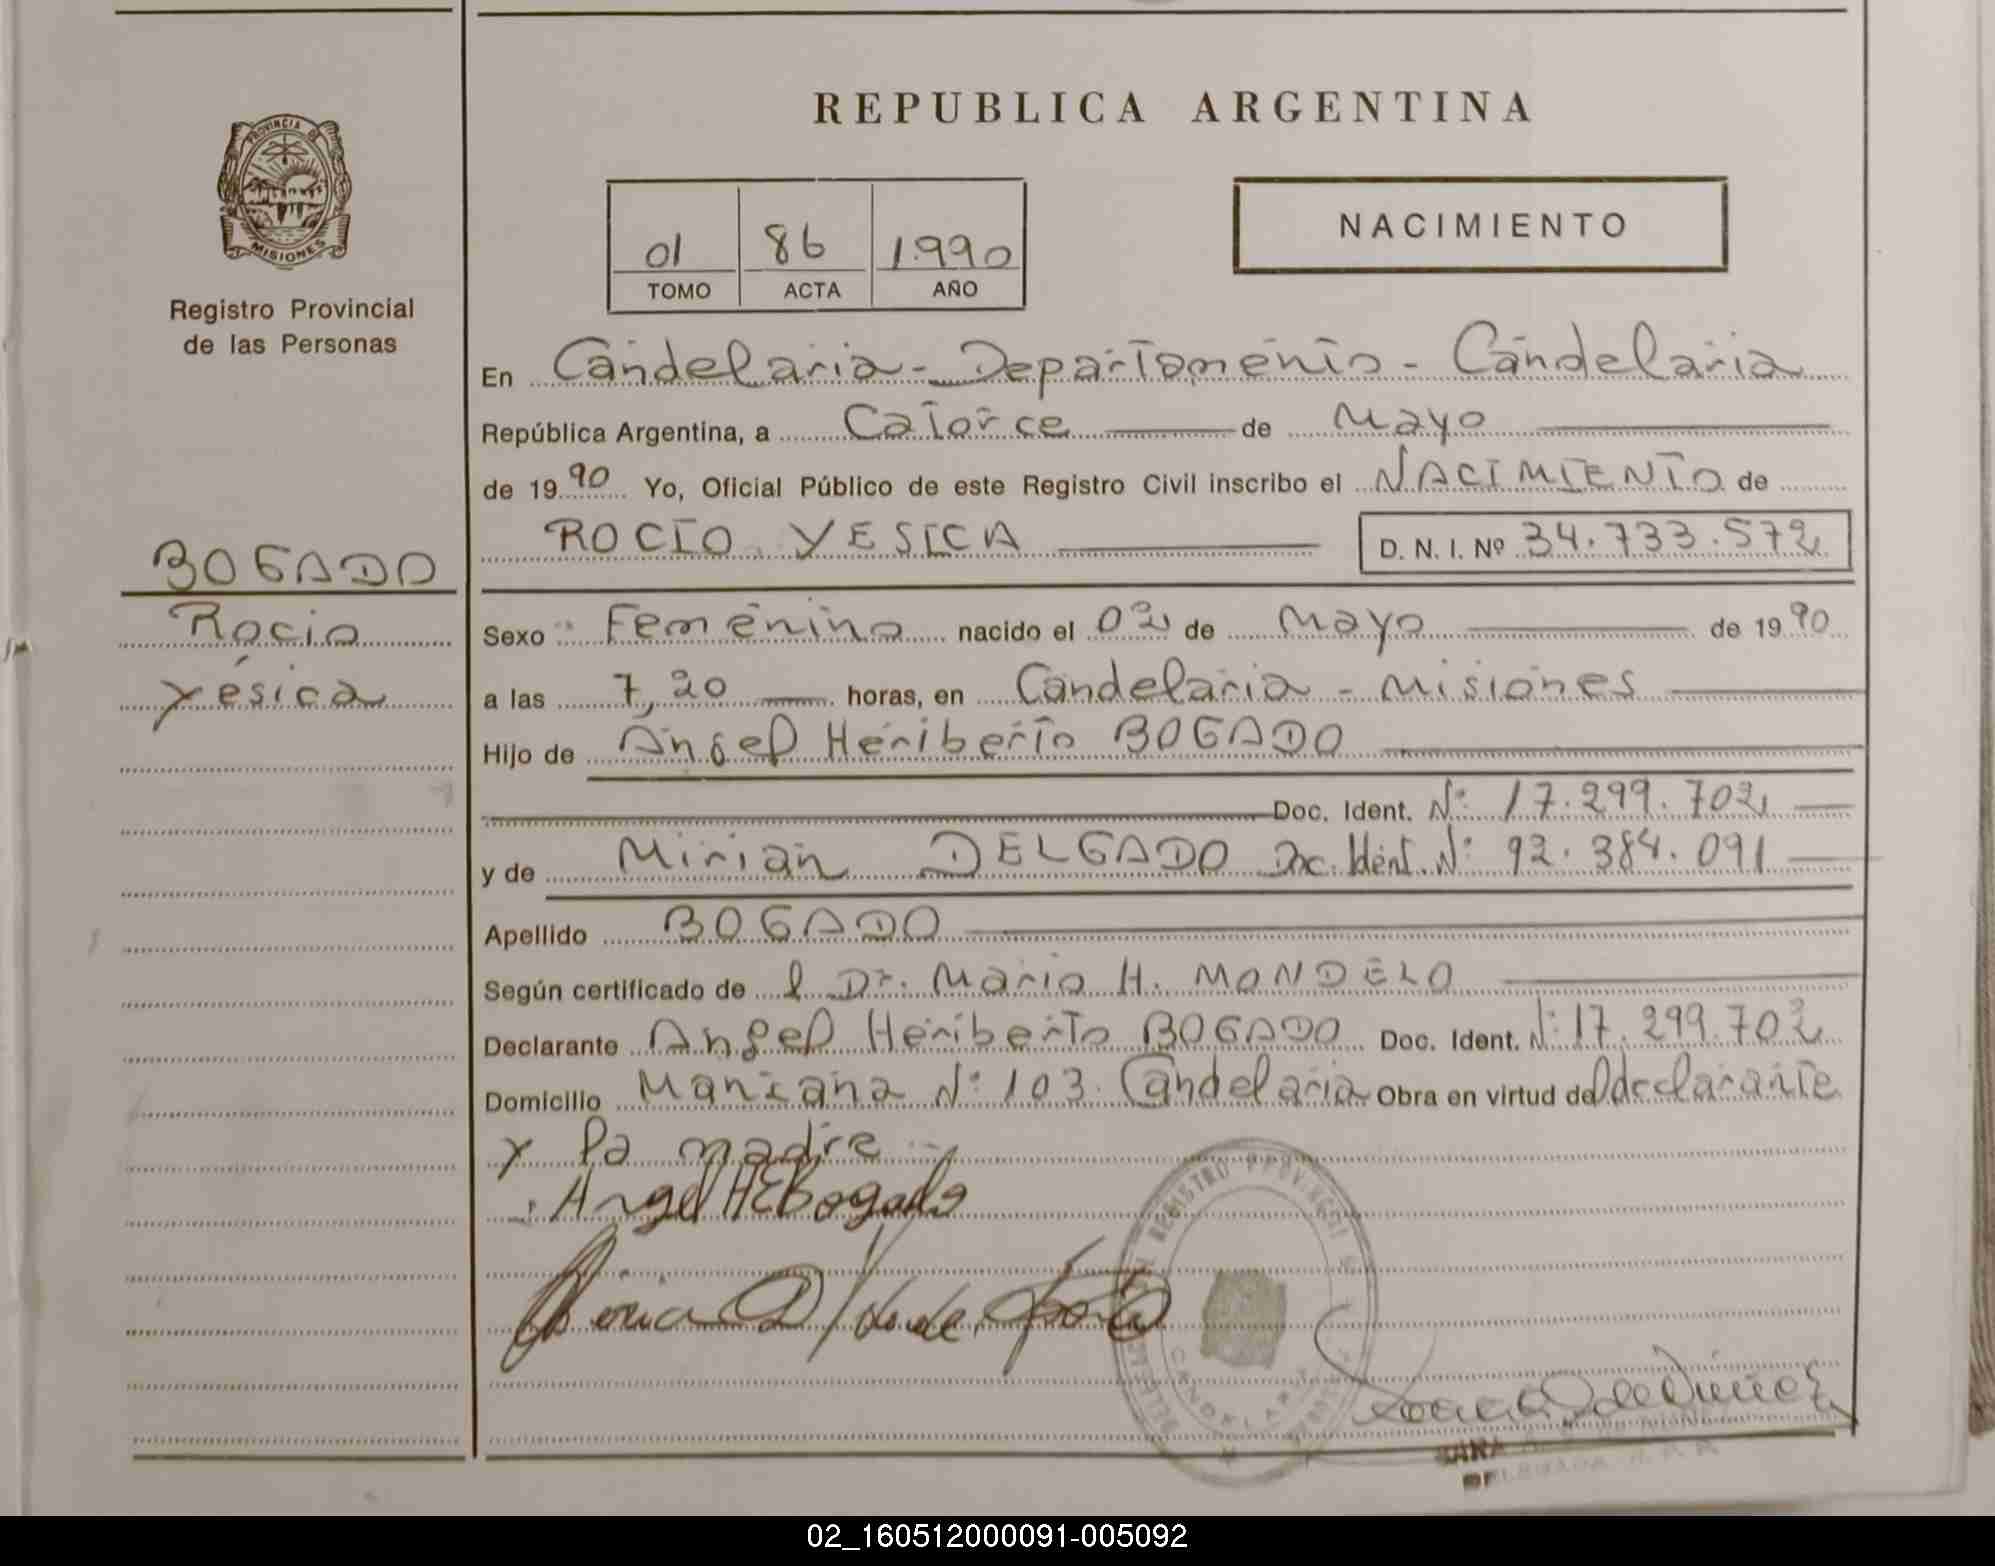 REPUBLICA ARGENTINA
PROVINCIA DE MISIONES
Registro Provincial
de las Personas
01 86 1.990
TOMO ACTA AÑO
NACIMIENTO
En Candelaria - Departamento - Candelaria
República Argentina, a Catorce de Mayo
de 1990 Yo, Oficial Público de este Registro Civil inscribo el NACIMIENTO de
ROCIO YESICA D. N. I. Nº 34.733.572
BOGADO
Rocio
Yésica
Sexo Femenino nacido el 02 de Mayo de 1990
a las 7,20 horas, en Candelaria - Misiones
Hijo de Angel Heriberto BOGADO
Doc. Ident. Nº 17.299.702
y de Mirian DELGADO Doc. Ident. Nº 92.384.091
Apellido BOGADO
Según certificado de l Dr. Mario H. MONDELO
Declarante Angel Heriberto BOGADO Doc. Ident. Nº 17.299.702
Domicilio Manzana Nº 103. Candelaria Obra en virtud del declarante
y la madre
Angel H Bogado
CANDELARIA
02_160512000091-005092